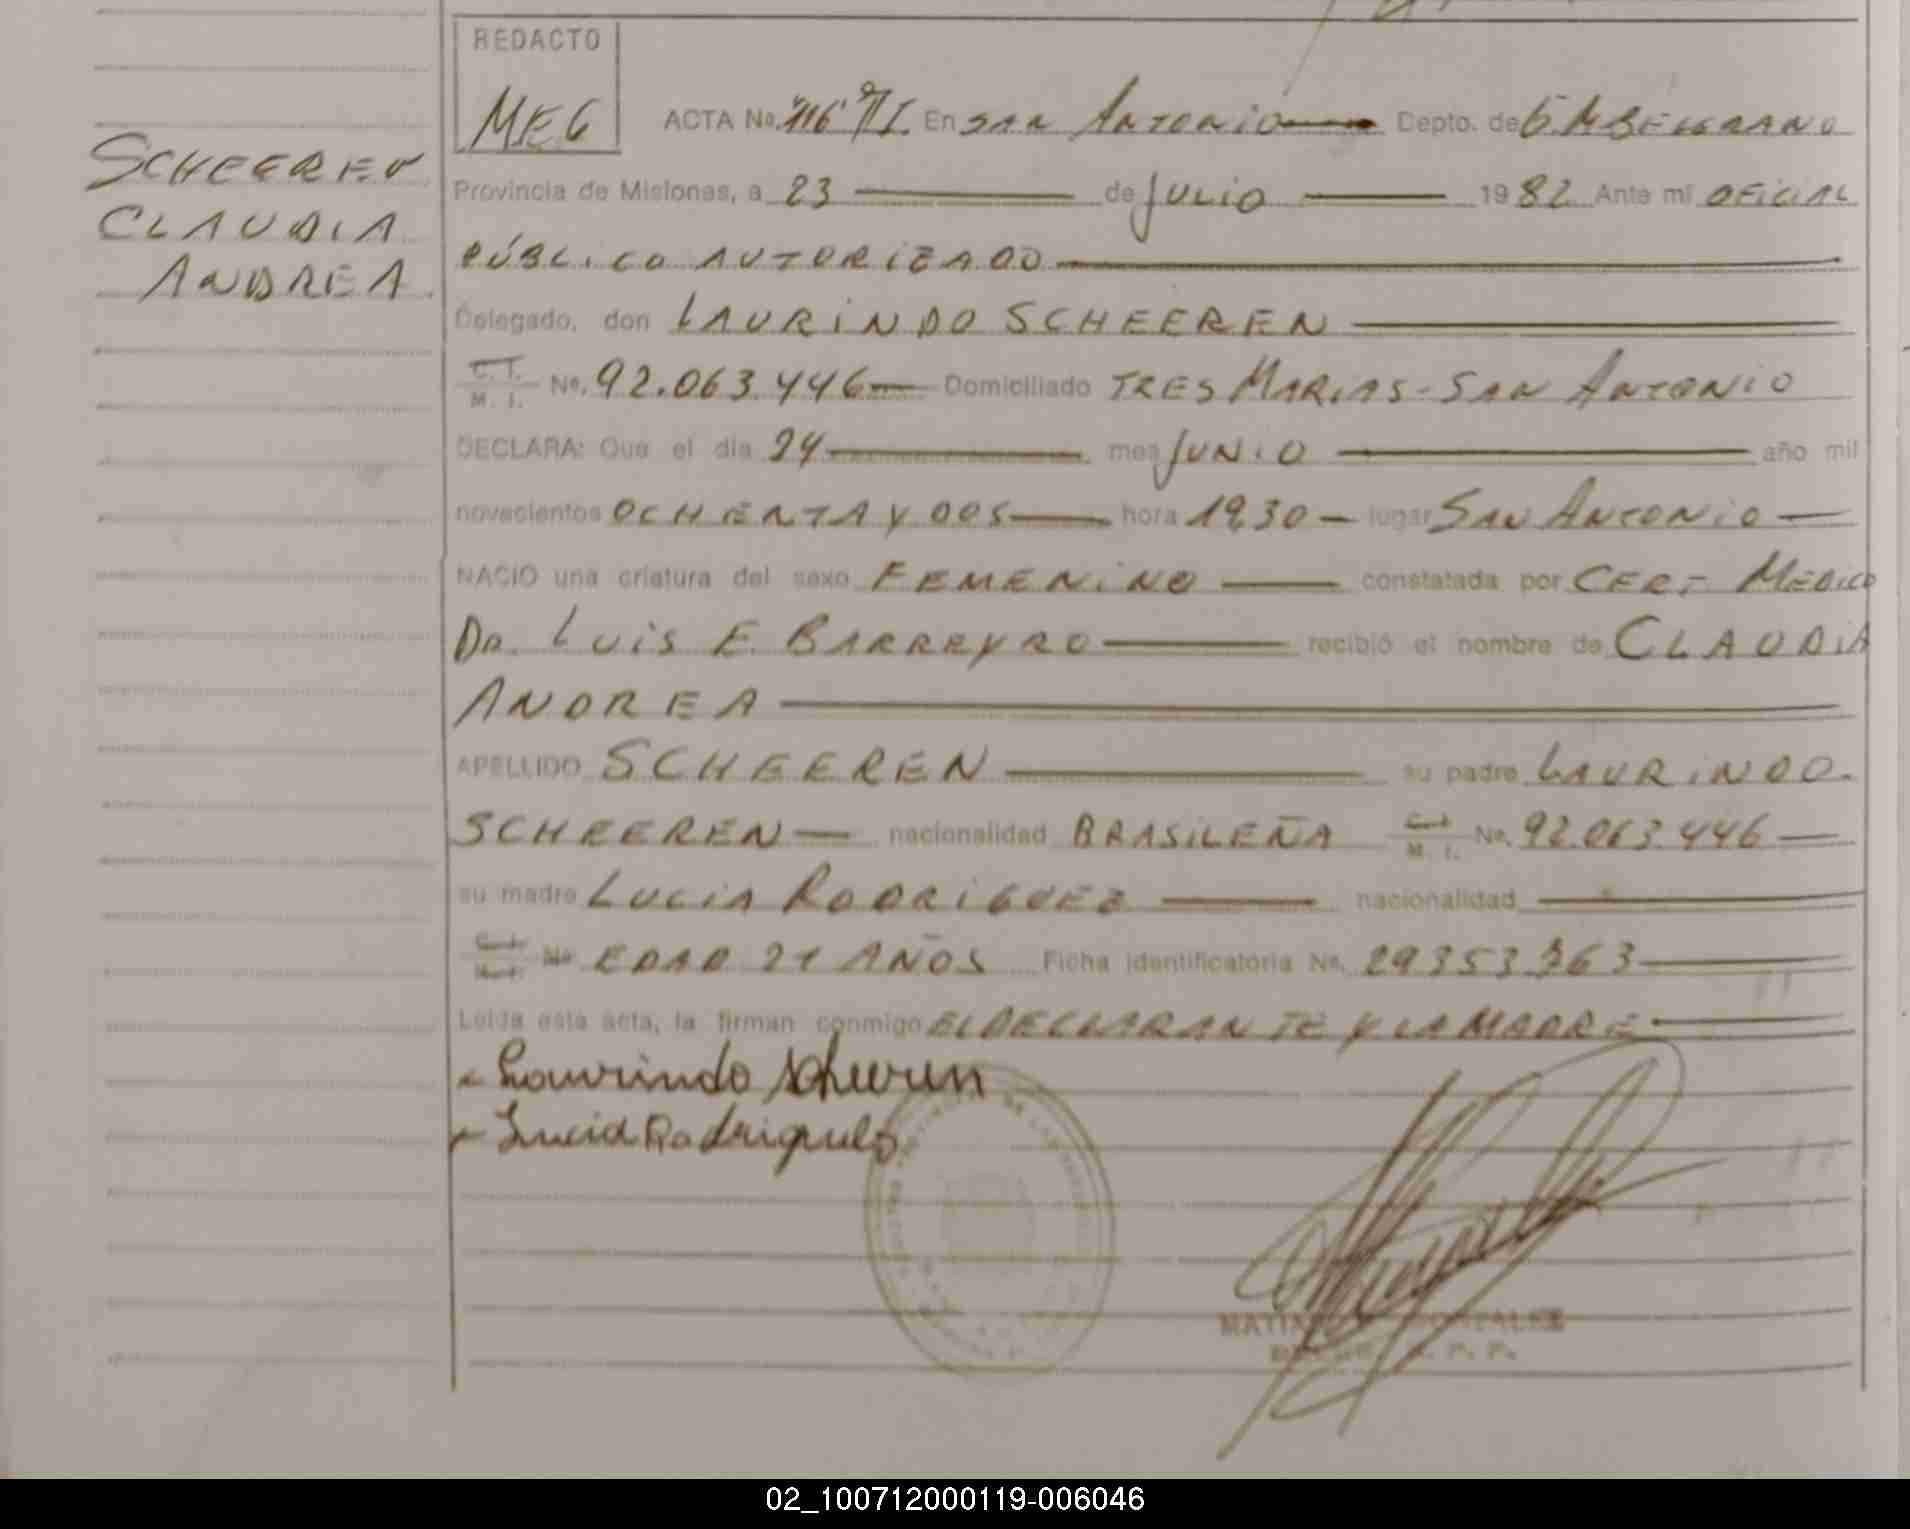 REDACTO
MEG
ACTA No. 116 TI En SAN ANTONIO Depto. de G. M BELGRANO
SCHEEREN
CLAUDIA
ANDREA
Provincia de Misiones, a 23 de JULIO 1982 Ante mi OFICIAL
PÚBLICO AUTORIZADO
Delegado, don LAURINDO SCHEEREN
C. I.
M. I. No. 92.063.446 Domiciliado TRES MARIAS - SAN ANTONIO
DECLARA: Que el dia 24 mes JUNIO año mil
novecientos OCHENTA Y DOS hora 19,30 lugar SAN ANTONIO
NACIO una criatura del sexo FEMENINO constatada por CERT MÉDICO
DR. LUIS E. BARREYRO recibió el nombre de CLAUDIA
ANDREA
APELLIDO SCHEEREN su padre LAURINDO
SCHEEREN nacionalidad BRASILEÑA C. I.
M. I. No. 92.063.446
su madre LUCIA RODRIGUEZ nacionalidad
C. I.
M. I. No EDAD 21 AÑOS Ficha identificatoria No. 29353363
Leida esta acta, la firman conmigo EL DECLARANTE Y LA MADRE
Laurindo Scheeren
Lucia Rodrigues
P. P.
02_100712000119-006046